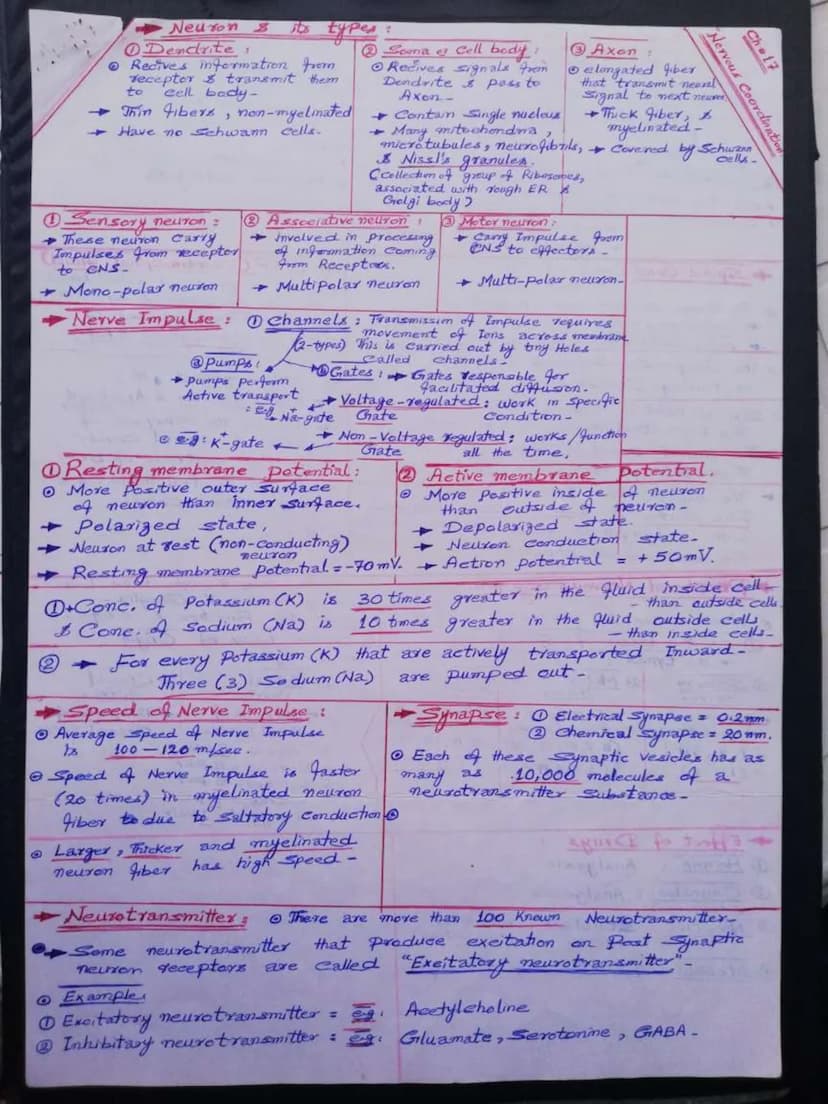 → Neuron & its types :
Ch # 17
Nervous Coordination
① Dendrite :
⊙ Recives information from
receptor & transmit them
to cell body-
→ Thin fibers, non-myelinated
→ Have no Schwann cells.
② Soma or Cell body :
⊙ Recives signals from
Dendrite & pass to
Axon-
→ Contain Single nucleus
→ Many mitochondria,
microtubules, neurofibrils,
& Nissl's granules.
(Collection of group of Ribosomes,
associated with rough ER &
Golgi body)
③ Axon :
⊙ elongated fiber
that transmit neural
Signal to next neuron
→ Thick fiber, &
myelinated -
→ Covered by Schwann
cells -
① Sensory neuron :
→ These neuron Carry
Impulses from receptor
to CNS-
→ Mono-polar neuron
② Associative neuron :
→ Involved in processing
of information coming
from Receptors.
→ Multipolar neuron
③ Motor neuron :
→ Carry Impulse from
CNS to effectors -
→ Multi-polar neuron-
→ Nerve Impulse : ① Channels : Transmission of Impulse requires
movement of Ions across membrane
(2-types) This is carried out by tiny Holes
Called channels-
ⓐ Pumps :
→ Pumps perform
Active transport
ⓑ Gates : → Gates responsible for
facilitated diffusion.
: e.g → Na-gate ← Voltage-regulated : work in Specific
Gate Condition-
⊙ e.g : K⁺-gate ← → Non-Voltage regulated : works/function
Gate all the time.
① Resting membrane potential :
⊙ More Positive outer surface
of neuron than inner surface.
→ Polarized state,
→ Neuron at rest (non-conducting)
neuron
→ Resting membrane Potential = -70 mV.
② Active membrane Potential.
⊙ More Positive inside of neuron
than outside of neuron-
→ Depolarized state.
→ Neuron conduction state-
→ Action potential = +50mV.
①→Conc. of Potassium (K) is 30 times greater in the fluid inside cell
- than outside cell
& Conc. of Sodium (Na) is 10 times greater in the fluid outside cells
- than inside cells-
② → For every Potassium (K) that are actively transported Inward-
Three (3) Sodium (Na) are pumped out -
→ Speed of Nerve Impulse :
⊙ Average Speed of Nerve Impulse
is 100 – 120 m/sec.
⊙ Speed of Nerve Impulse is faster
(20 times) in myelinated neuron
fiber due to Saltatory conduction
⊙ Larger, Thicker and myelinated
neuron fiber has high speed -
→ Synapse : ① Electrical Synapse = 0.2nm.
② Chemical Synapse = 20nm.
⊙ Each of these Synaptic vesicles has as
many as 10,000 molecules of a
neurotransmitter substance-
→ Neurotransmitter : ⊙ There are more than 100 Known Neurotransmitter-
→ Some neurotransmitter that produce excitation on Post Synaptic
neuron receptors are called "Excitatory neurotransmitter"-
⊙ Example:
① Excitatory neurotransmitter = e.g : Acetylcholine
② Inhibitary neurotransmitter = e.g : Gluamate, Serotonine, GABA -